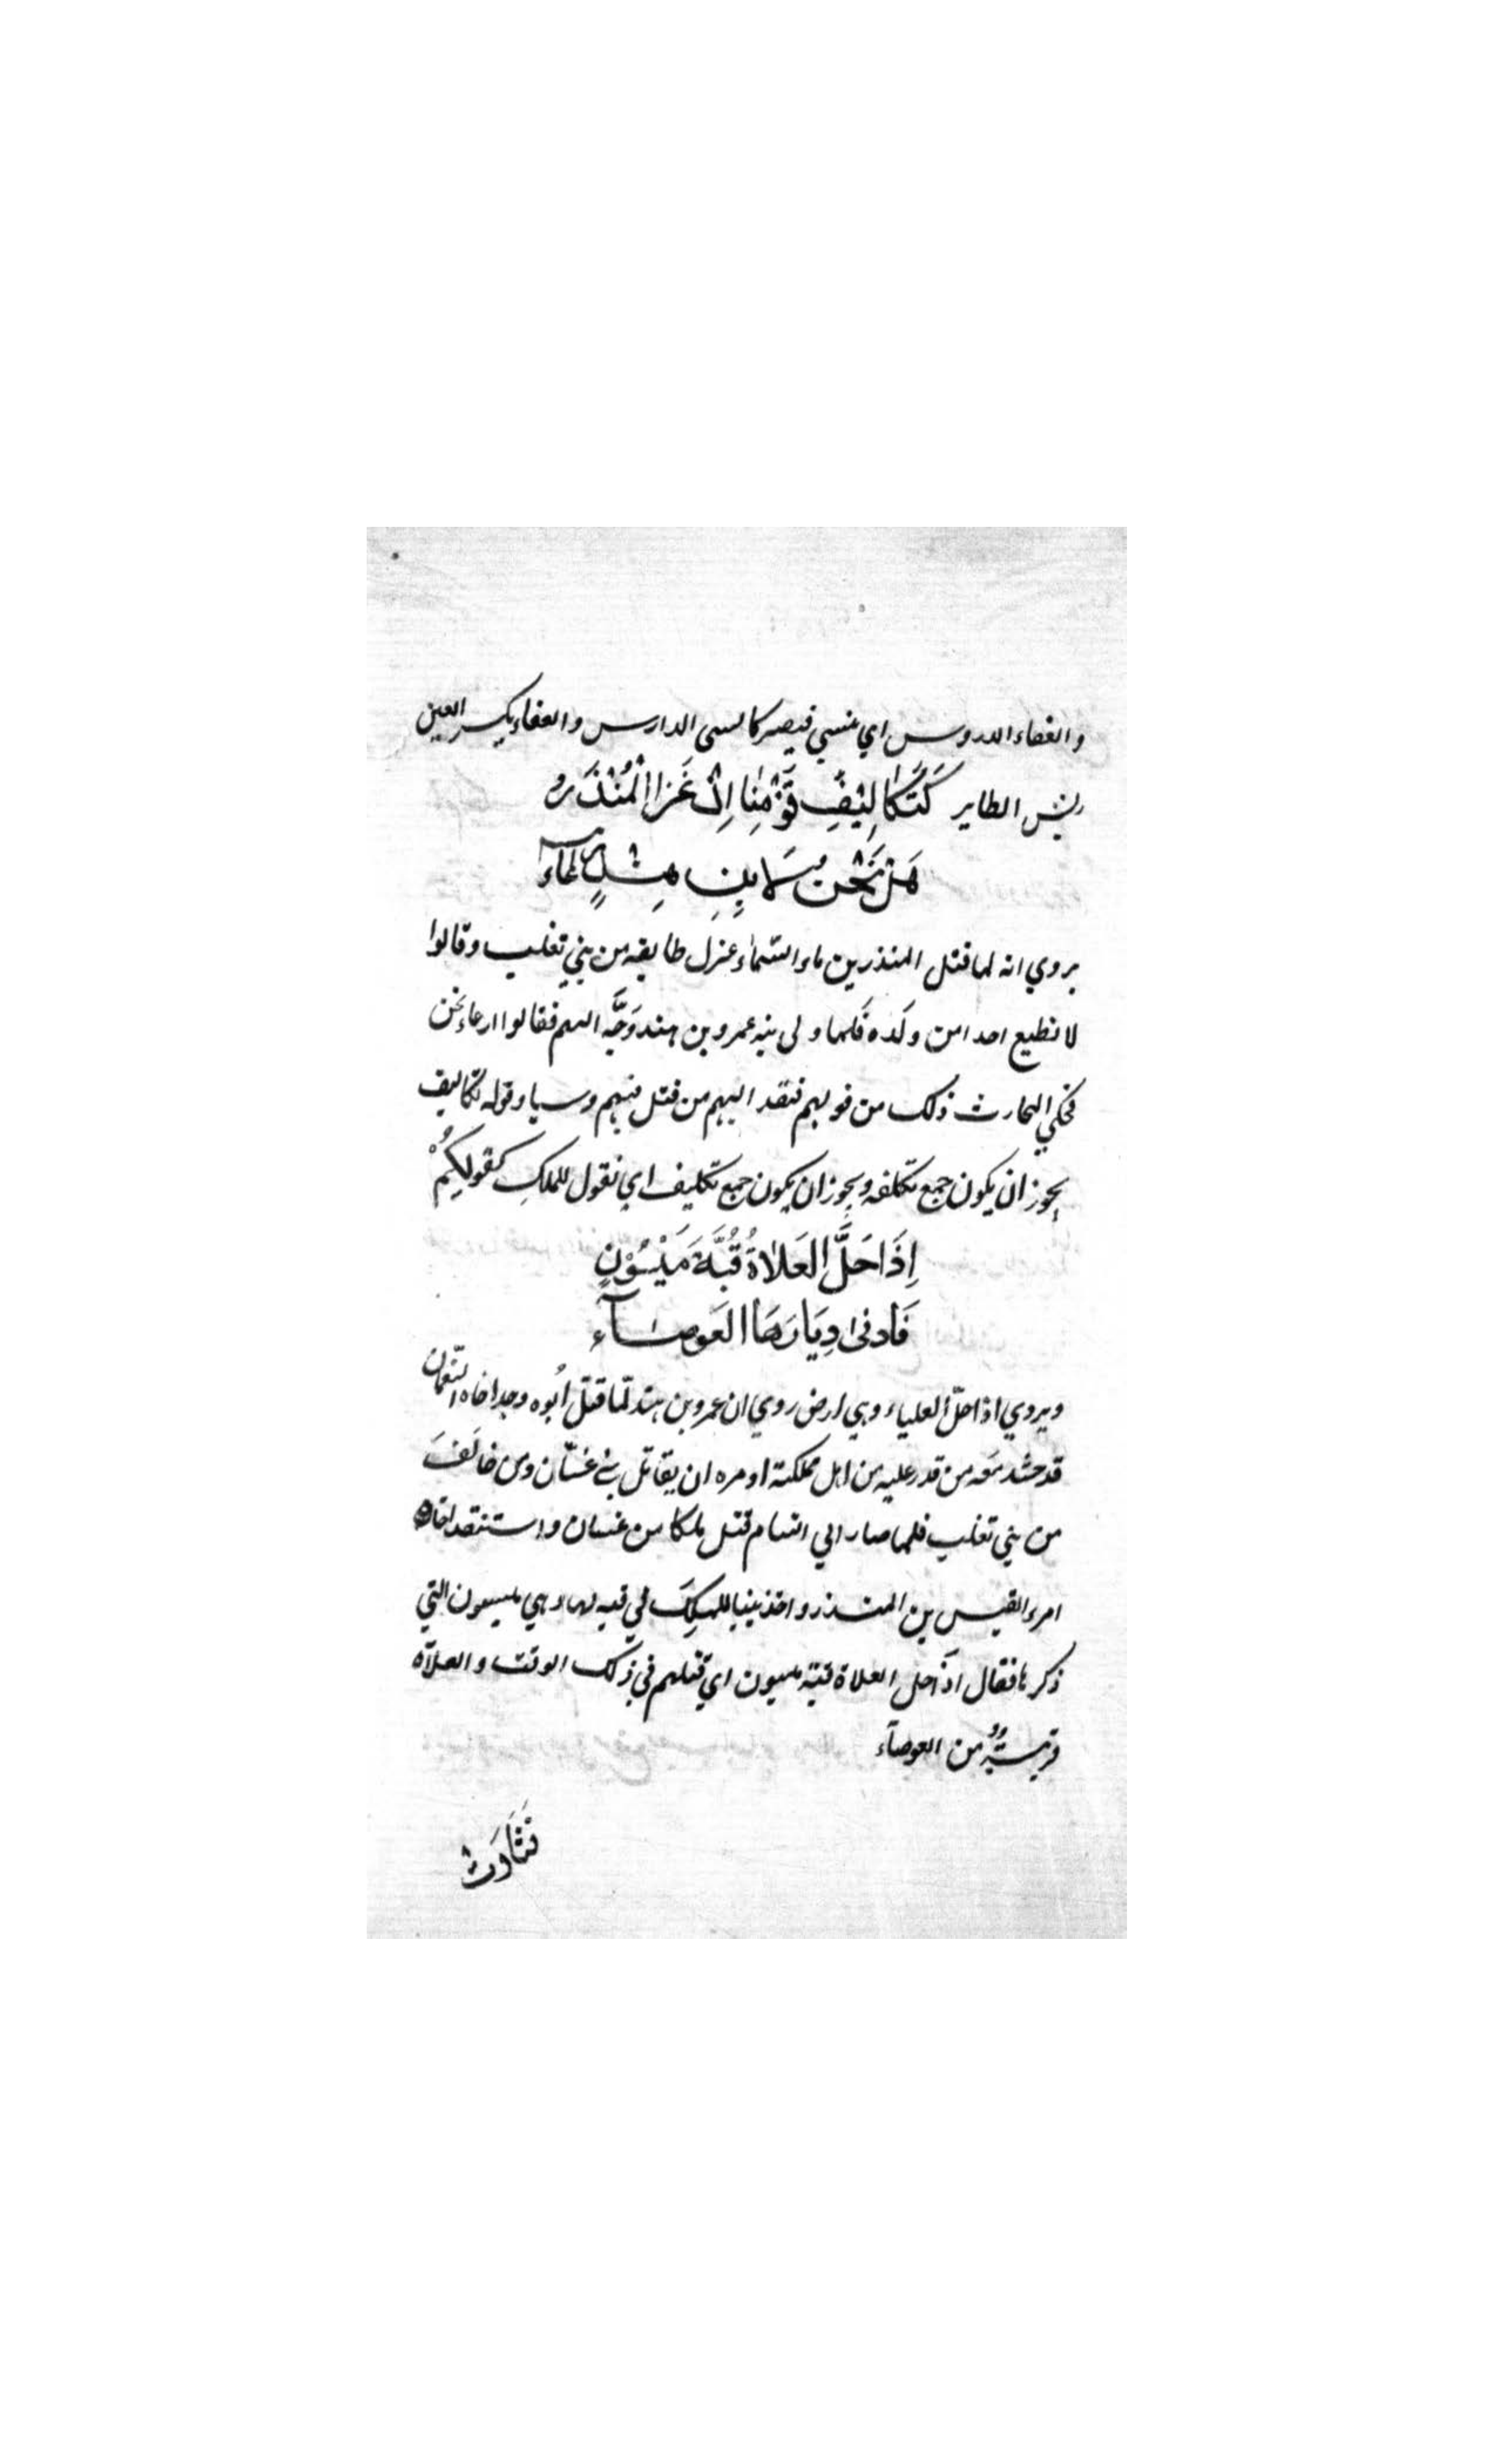 والعفاء الدروس اي ينسي فيصير كالسى الدارس والعفاء بكسر العين
ريش الطاير كَتَكَالِيْفِ قَوْمِنَا اِذْ غَزَا الْمُنْذِرُ
هَلْ نَحْنُ لابْنِ هِنْدٍ رِعَآءُ
يروي انه لما قتل المنذر بن ماء السّماء عزل طايفه من بني تغلب وقالوا
لا نطيع احدا من ولده فلما ولى بنيه عمرو بن هند وَجَّه اليهم فقالوا ارعاء نحن
فحكي الحارث ذلك من قولهم فنقد اليهم من قتل منهم وسبا وقوله تكاليف
يجوز ان يكون جمع تكلفه ويجوز ان يكون جمع تكليف اي نقول للملكِ كقولِكُمْ
اِذَا حَلَّ العَلَاةَ قُبَّةَ مَيْسُوْنٍ
فَادنى دِيَارهَا العَوصَآء
ويروي اذا حلّ العلياء وهي ارض روي ان عمرو بن هند لمّا قتل أبوه وجد اخاه النّعمان
قد حشد معه من قدر عليه من اهل مملكته اومره ان يقاتل بني غسّان ومن خالَفَ
من بني تغلب فلما صار الي الشام قتل ملكا من غسان واستنقد اخاه
امرء القيس بن المنذر واخذ بنتا للملِكَ في قبه لها وهي ميسون التي
ذكرها فقال اذ احل العلاة قبّة ميسون اي قتلهم في ذلك الوقت والعلاّه
قريبةٌ من العوصآء
فَتَأَوَّتْ